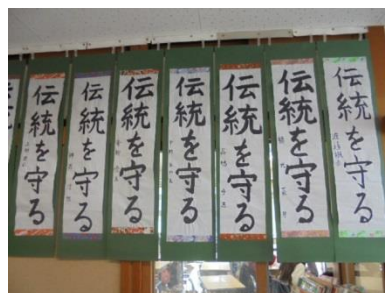 伝統を守る
伝統を守る
伝統を守る
伝統を守る
伝統を守る
伝統を守る
伝統を守る